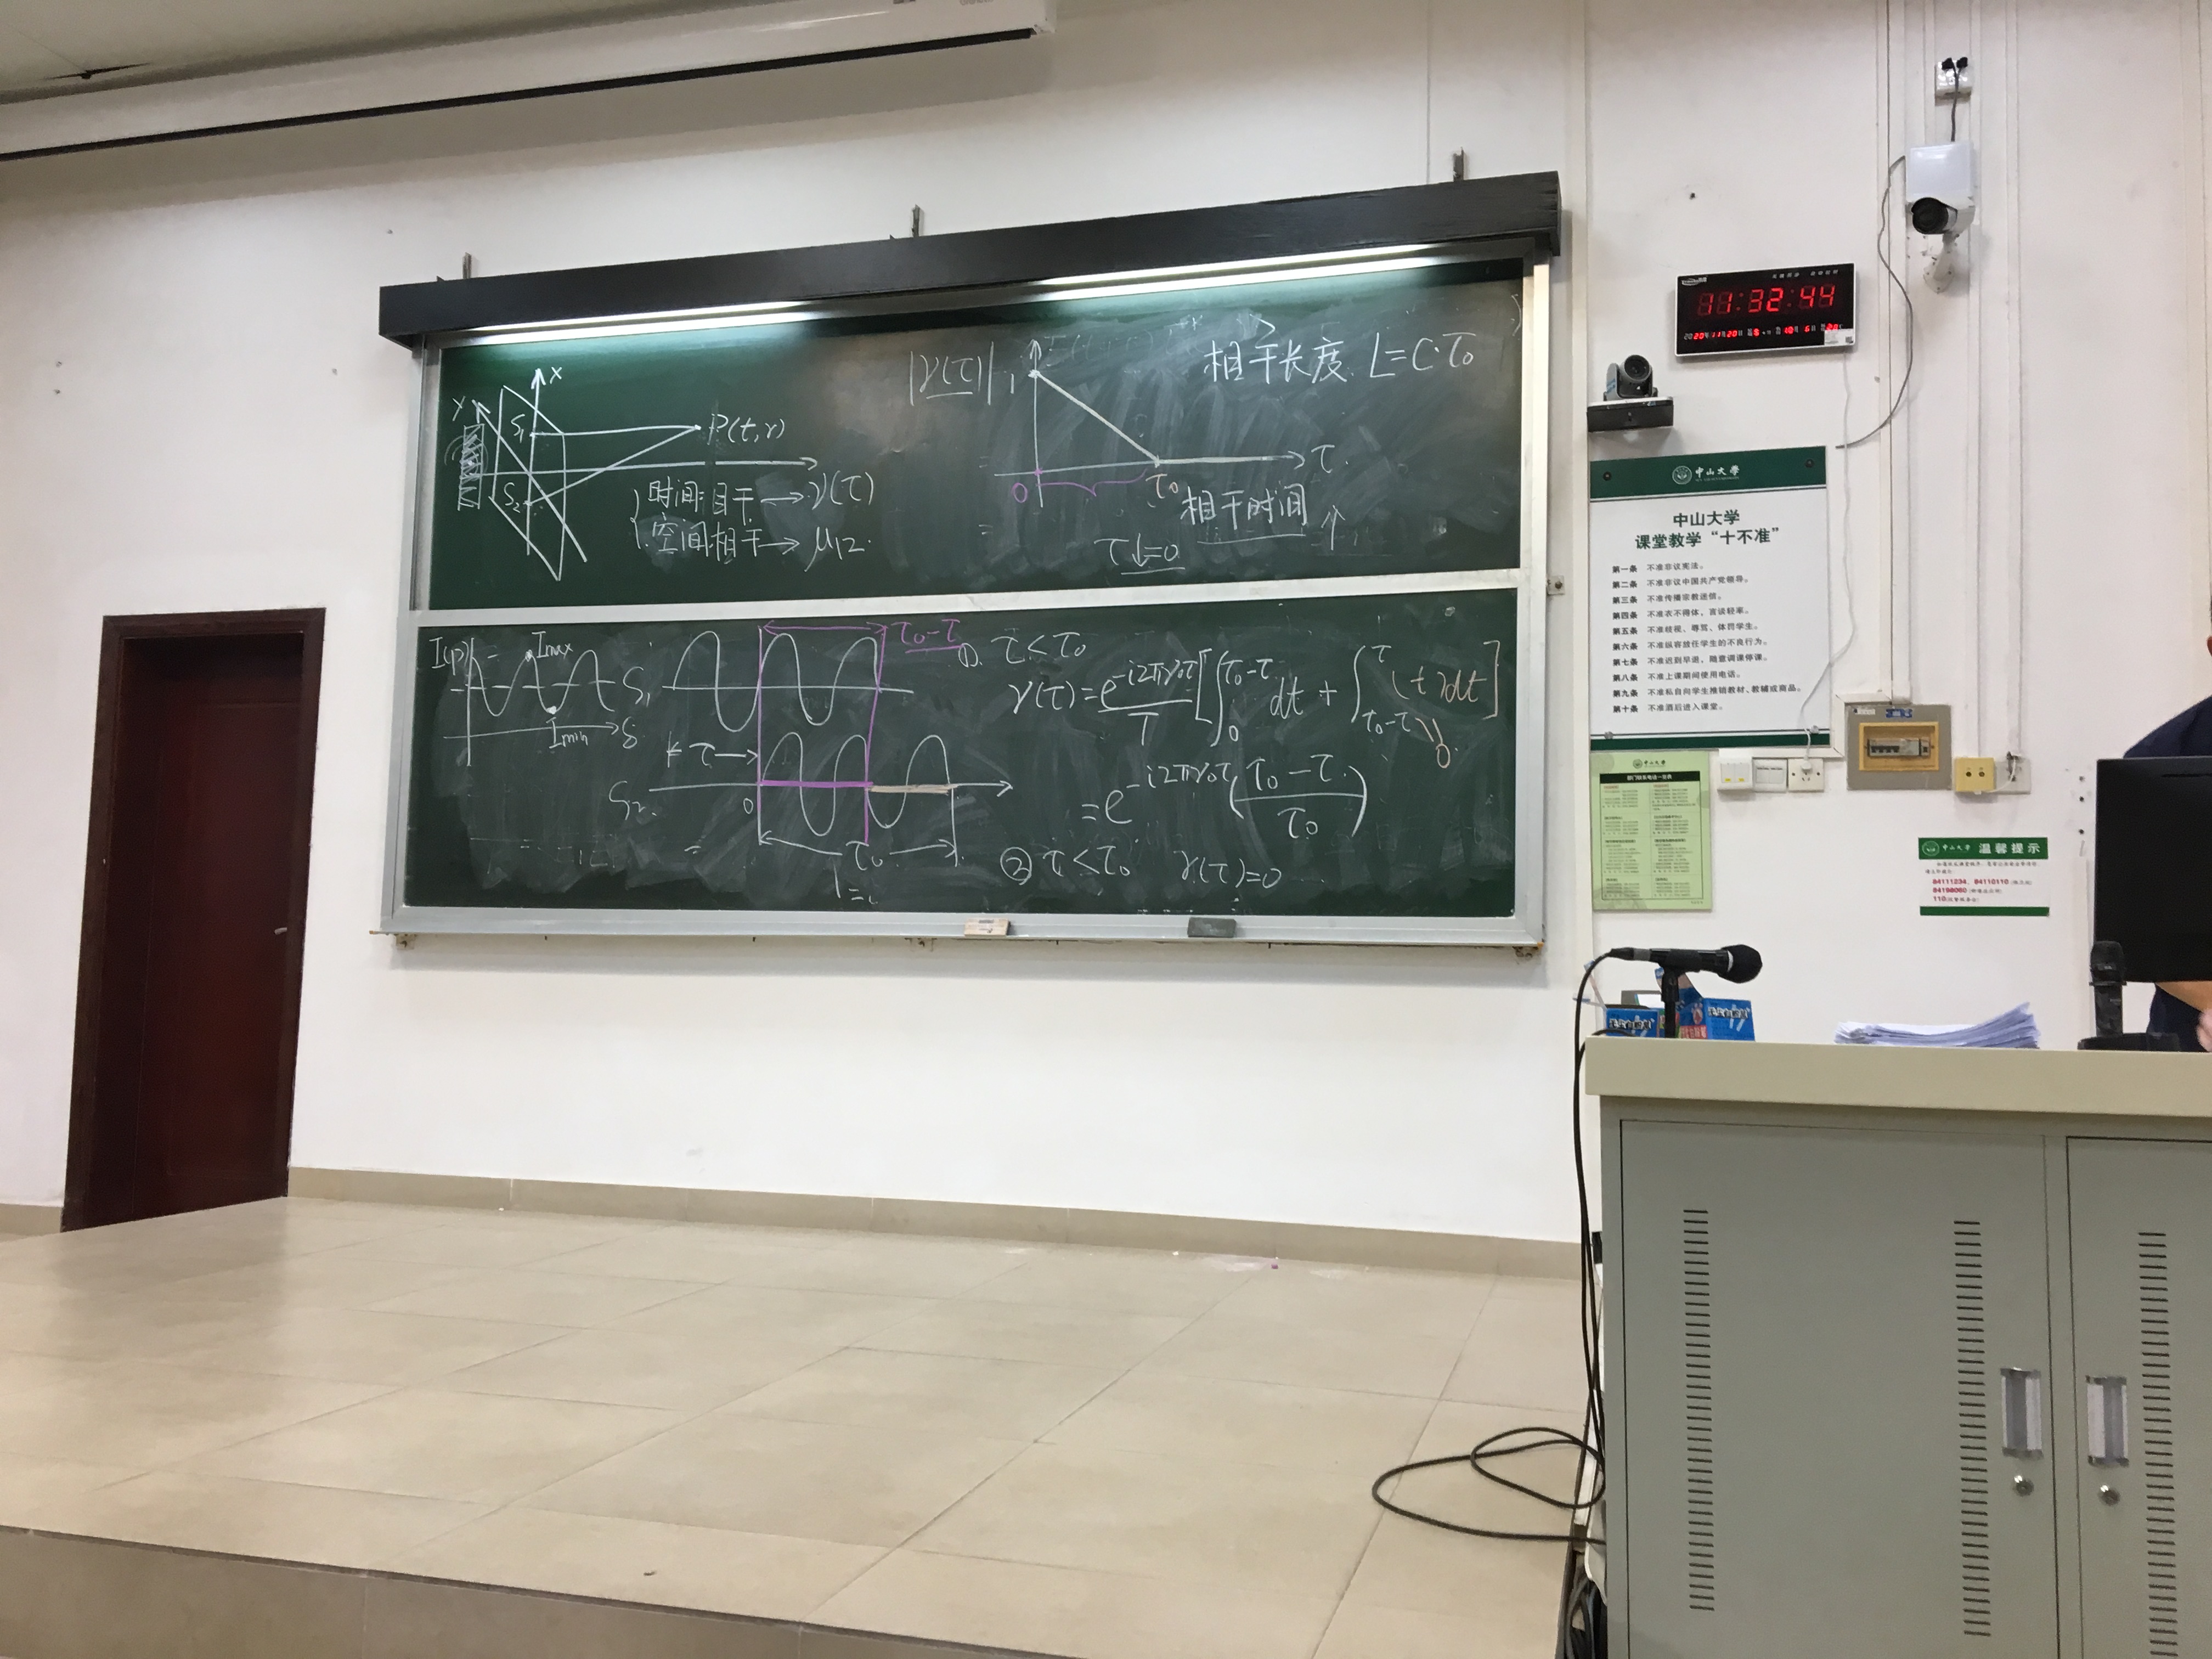 x
y
S₁
S₂
P(t,r)
时间相干→γ(τ)
空间相干→μ₁₂.
|γ(τ)|
1
0
τ₀
τ.
相干时间↑
τ↓=0
相干长度 L=C·τ₀
I(p)
Imax
Imin
δ
S₁
τ₀-τ
←τ→
S₂.
0
τ₀
①. τ<τ₀
γ(τ)=e^{-i2πν₀τ}/T[∫₀^{τ₀-τ}dt+∫_{τ₀-τ}^{τ}(t)dt]
0.
=e^{-i2πν₀τ}(τ₀-τ/τ₀)
② τ<τ₀ γ(τ)=0
11:32:44
中山大学
中山大学
课堂教学“十不准”
第一条 不准非议宪法。
第二条 不准非议中国共产党领导。
第三条 不准传播宗教迷信。
第四条 不准衣不得体、言谈轻率。
第五条 不准歧视、辱骂、体罚学生。
第六条 不准纵容放任学生的不良行为。
第七条 不准迟到早退、随意调课停课。
第八条 不准上课期间使用电话。
第九条 不准私自向学生推销教材、教辅或商品。
第十条 不准酒后进入课堂。
中山大学
中山大学 温馨提示
84111234、84110110
84198060
110